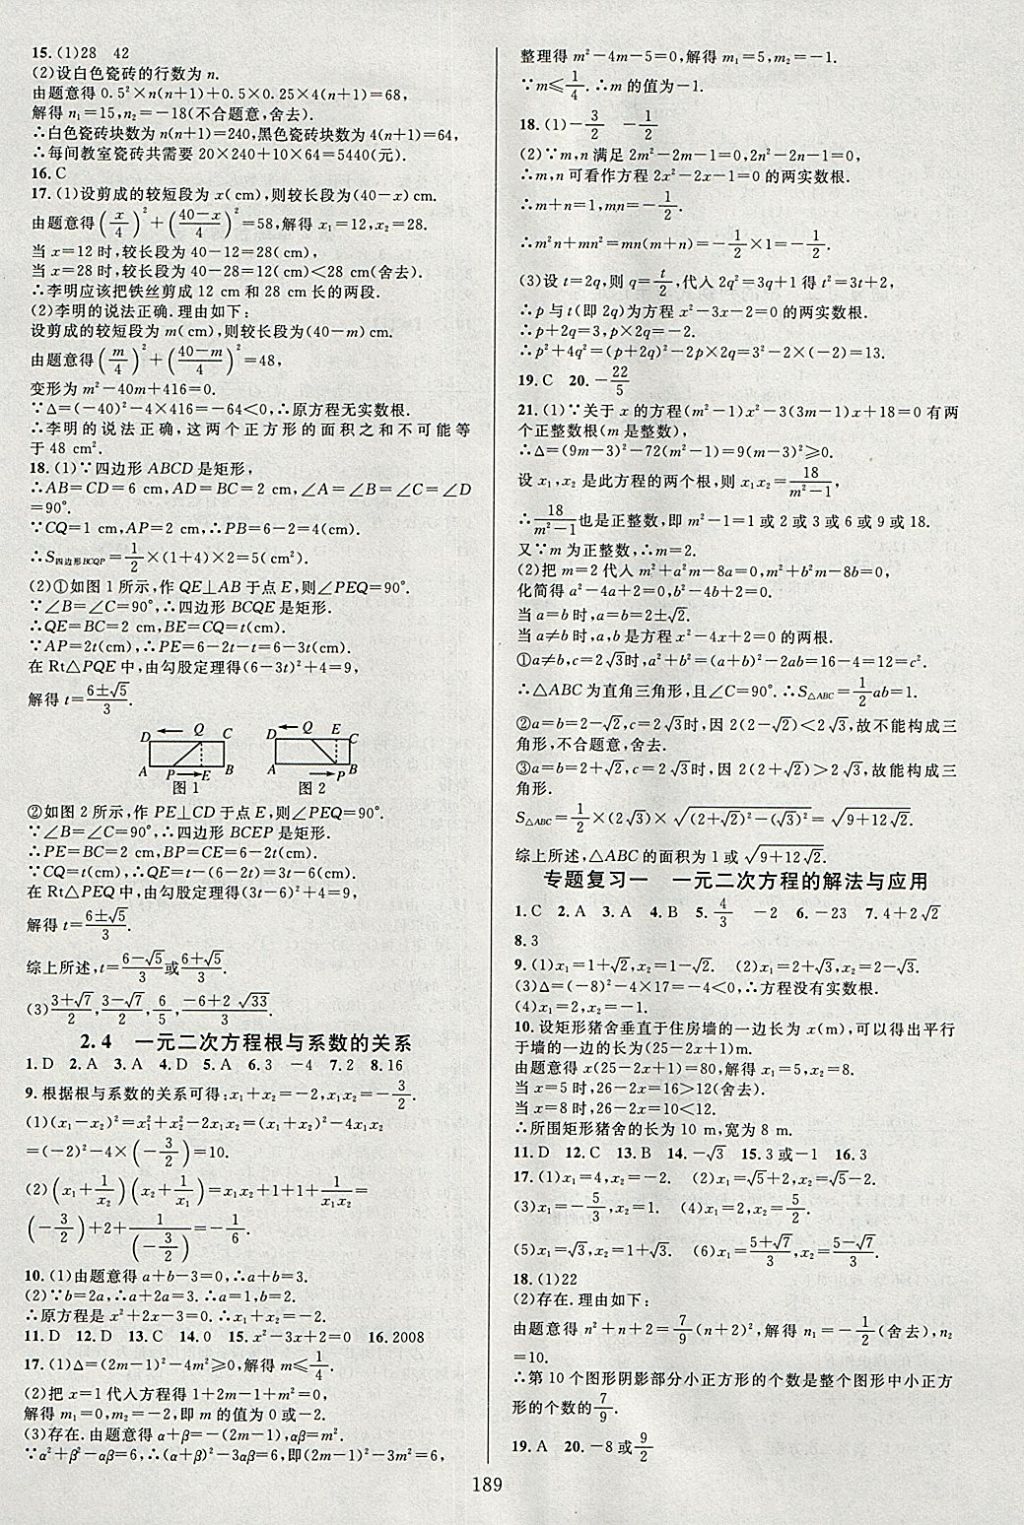 15. (1)28　42
(2)设白色瓷砖的行数为 n.
由题意得 0.5²×n(n+1)+0.5×0.25×4(n+1)=68,
解得 n₁=15,n₂=-18(不合题意,舍去).
∴白色瓷砖块数为 n(n+1)=240,黑色瓷砖块数为 4(n+1)=64,
∴每间教室瓷砖共需要 20×240+10×64=5440(元).
16. C
17. (1)设剪成的较短段为 x(cm),则较长段为(40-x) cm.
由题意得(x/4)²+((40-x)/4)²=58,解得 x₁=12,x₂=28.
当 x=12 时,较长段为 40-12=28(cm),
当 x=28 时,较长段为 40-28=12(cm)<28(舍去).
∴李明应该把铁丝剪成 12 cm 和 28 cm 长的两段.
(2)李明的说法正确.理由如下:
设剪成的较短段为 m(cm),则较长段为(40-m) cm.
由题意得(m/4)²+((40-m)/4)²=48,
变形为 m²-40m+416=0.
∵Δ=(-40)²-4×416=-64<0,∴原方程无实数根.
∴李明的说法正确,这两个正方形的面积之和不可能等
于 48 cm².
18. (1)∵四边形 ABCD 是矩形,
∴AB=CD=6 cm,AD=BC=2 cm,∠A=∠B=∠C=∠D
=90°.
∵CQ=1 cm,AP=2 cm,∴PB=6-2=4(cm).
∴S四边形BCQP=1/2×(1+4)×2=5(cm²).
(2)①如图 1 所示,作 QE⊥AB 于点 E,则∠PEQ=90°.
∵∠B=∠C=90°,∴四边形 BCQE 是矩形.
∴QE=BC=2 cm,BE=CQ=t(cm).
∵AP=2t(cm),∴PE=6-2t-t=6-3t(cm).
在 Rt△PQE 中,由勾股定理得(6-3t)²+4=9,
解得 t=(6±√5)/3.
D Q C
A P E B
图 1
D Q E C
A P B
图 2
②如图 2 所示,作 PE⊥CD 于点 E,则∠PEQ=90°.
∵∠B=∠C=90°,∴四边形 BCEP 是矩形.
∴PE=BC=2 cm,BP=CE=6-2t(cm).
∵CQ=t(cm),∴QE=t-(6-2t)=3t-6(cm).
在 Rt△PEQ 中,由勾股定理得(3t-6)²+4=9,
解得 t=(6±√5)/3.
综上所述,t=(6-√5)/3或(6+√5)/3.
(3)(3+√7)/2,(3-√7)/2,6/5,(-6+2√33)/3
2.4　一元二次方程根与系数的关系
1. D 2. A 3. A 4. D 5. A 6. 3　-4 7. 2 8. 16
9. 根据根与系数的关系可得:x₁+x₂=-2,x₁x₂=-3/2.
(1)(x₁-x₂)²=x₁²+x₂²-2x₁x₂=(x₁+x₂)²-4x₁x₂
=(-2)²-4×(-3/2)=10.
(2)(x₁+1/x₂)(x₂+1/x₁)=x₁x₂+1+1+1/(x₁x₂)=
(-3/2)+2+1/(-3/2)=-1/6.
10. (1)由题意得 a+b-3=0,∴a+b=3.
(2)∵b=2a,∴a+2a=3.∴a=1,b=2.
∴原方程是 x²+2x-3=0,∴x₁=1,x₂=-2.
11. D 12. D 13. C 14. 0 15. x²-3x+2=0 16. 2008
17. (1)Δ=(2m-1)²-4m²≥0,解得 m≤1/4.
(2)把 x=1 代入方程得 1+2m-1+m²=0,
解得 m₁=0,m₂=-2,即 m 的值为 0 或-2.
(3)存在.由题意得 α+β=-(2m-1),αβ=m².
∵α²+β²-αβ=6,∴(α+β)²-3αβ=6,即(2m-1)²-3m²=6,
整理得 m²-4m-5=0,解得 m₁=5,m₂=-1.
∵m≤1/4.∴m 的值为-1.
18. (1)-3/2　-1/2
(2)∵m,n 满足 2m²-2m-1=0,2n²-2n-1=0,
∴m,n 可看作方程 2x²-2x-1=0 的两实数根.
∴m+n=1,mn=-1/2.
∴m²n+mn²=mn(m+n)=-1/2×1=-1/2.
(3)设 t=2q,则 q=t/2,代入 2q²=3q+1 得 t²=3t+2,
∴p 与 t(即 2q)为方程 x²-3x-2=0 的两实数根.
∴p+2q=3,p×2q=-2.
∴p²+4q²=(p+2q)²-2p×2q=3²-2×(-2)=13.
19. C 20. -22/5
21. (1)∵关于 x 的方程(m²-1)x²-3(3m-1)x+18=0 有两
个正整数根(m 是整数),
∴Δ=(9m-3)²-72(m²-1)=9(m-3)²≥0.
设 x₁,x₂ 是此方程的两个根,则 x₁x₂=18/(m²-1),
∴18/(m²-1)也是正整数,即 m²-1=1 或 2 或 3 或 6 或 9 或 18.
又∵m 为正整数,∴m=2.
(2)把 m=2 代入 m²+a²m-8a=0,m²+b²m-8b=0,
化简得 a²-4a+2=0,b²-4b+2=0.
当 a=b 时,a=b=2±√2.
当 a≠b 时,a,b 是方程 x²-4x+2=0 的两根.
①a≠b,c=2√3时,a²+b²=(a+b)²-2ab=16-4=12=c².
∴△ABC 为直角三角形,且∠C=90°.∴S△ABC=1/2ab=1.
②a=b=2-√2,c=2√3时,因 2(2-√2)<2√3,故不能构成三
角形,不合题意,舍去.
③a=b=2+√2,c=2√3时,因 2(2+√2)>2√3,故能构成三
角形.
S△ABC=1/2×(2√3)×√((2+√2)²-(√3)²)=√(9+12√2).
综上所述,△ABC 的面积为 1 或√(9+12√2).
专题复习一　一元二次方程的解法与应用
1. C 2. A 3. A 4. B 5. 4/3　-2 6. -23 7. 4+2√2
8. 3
9. (1)x₁=1+√2,x₂=1-√2. (2)x₁=2+√3,x₂=2-√3.
(3)Δ=(-8)²-4×17=-4<0,∴方程没有实数根.
(4)x₁=2,x₂=1.
10. 设矩形猪舍垂直于住房墙的一边长为 x(m),可以得出平行
于墙的一边的长为(25-2x+1)m.
由题意得 x(25-2x+1)=80,解得 x₁=5,x₂=8.
当 x=5 时,26-2x=16>12(舍去).
当 x=8 时,26-2x=10<12.
∴所围矩形猪舍的长为 10 m,宽为 8 m.
11. D 12. C 13. B 14. -√3 15. 3 或-1 16. 3
17. (1)x₁=4,x₂=-2. (2)x₁=2,x₂=4.
(3)x₁=-5/3,x₂=1. (4)x₁=2,x₂=5/2.
(5)x₁=√3,x₂=1+√3. (6)x₁=(5+√7)/3,x₂=(5-√7)/3.
18. (1)22
(2)存在.理由如下:
由题意得 n²+n+2=7/9(n+2)²,解得 n₁=-1/2(舍去),n₂
=10.
∴第 10 个图形阴影部分小正方形的个数是整个图形中小正方
形的个数的7/9.
19. A 20. -8 或9/2
189